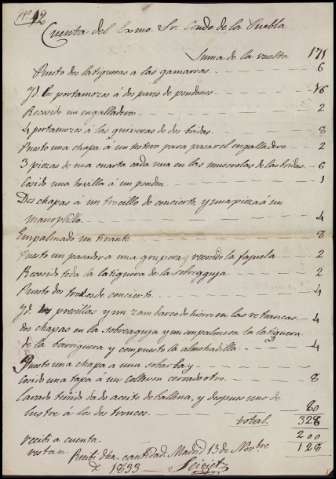 Nº 12
Cuenta del Exmo Sr Conde de la Puebla
Suma de la vuelta 171
Puesto dos latiguras a las gamarras 6
Yd. 6 portamozas á dos pares de pendones 16
Recosido un engalladero 2
4 portamozas á las guruperas de dos 8
Puesto una chapa á un para pasar el engalladero 2
3 piezas de una cuarta cada una en las muserolas de las bridas 6
Cosido una tovilla á un pendon 1
Dos chapas a un tirotillo de concierto, y una pieza á un
manoplillo 4
Empalmado un tirante 8
Puesto un pasador a una grupera y recosido la 2
Recosido toda la latiguera de la sobreaguja 2
Puesto dos de concierto 4
Yd. dos pevillas y un zambarco de hierro en las retrancas 4
dos chapas en la sobreaguja y un empalme en la latiguera
de la barriguera y compuesto la almohadilla 4
Puesto una chapa a una
cosido una tapa á un colleron 8
Lavado teñido dado de aceite de ballena, y despues cera de
lustre á las dos troncos 80
total 328
recibi a cuenta 200
restan 128
Recibi dha cantidad Madrid 13 de Nbre
de 1833